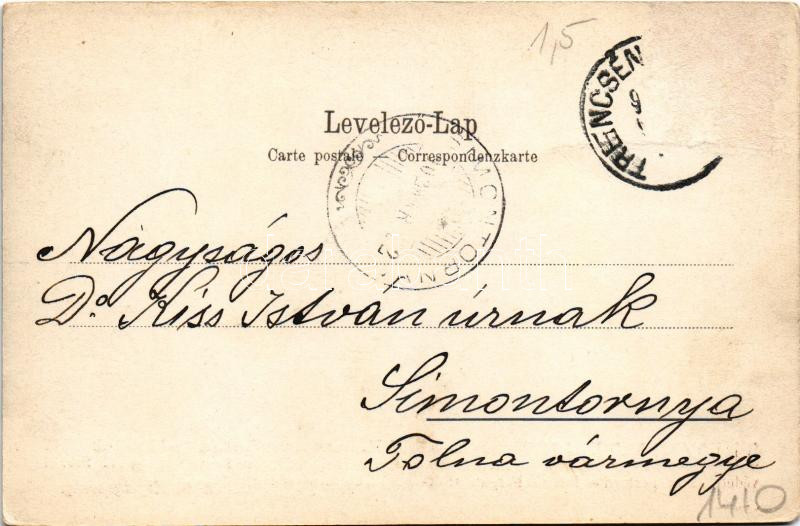 1,5
TRENCSÉN
Levelező-Lap
Carte postale — Correspondenzkarte
SIMONTORNYA
Nagyságos
Dr Kiss István úrnak
Simontornya
Tolna vármegye
1410